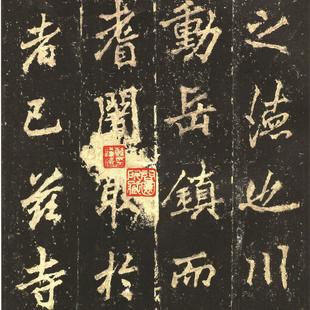 之德也川
動岳鎮而
耆闍取於
者已兹寺